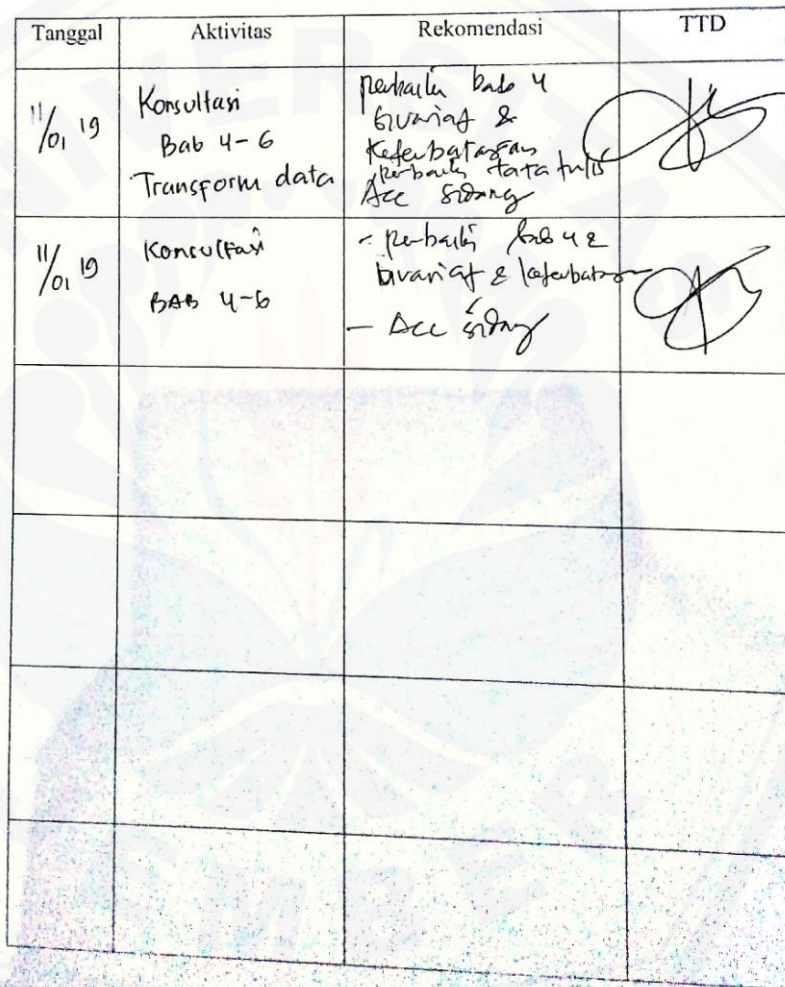 Tanggal Aktivitas Rekomendasi TTD
11/01 19
Konsultasi
Bab 4-6
Transform data
perbaiki bab 4
bivariat &
Keterbatasan
perbaiki tata tulis
Acc Sidang
11/01 19
Konsultasi
BAB 4-6
- perbaiki bab 4 &
bivariat & keterbatasan
- Acc sidang
UNIVERSITAS
JEMBER